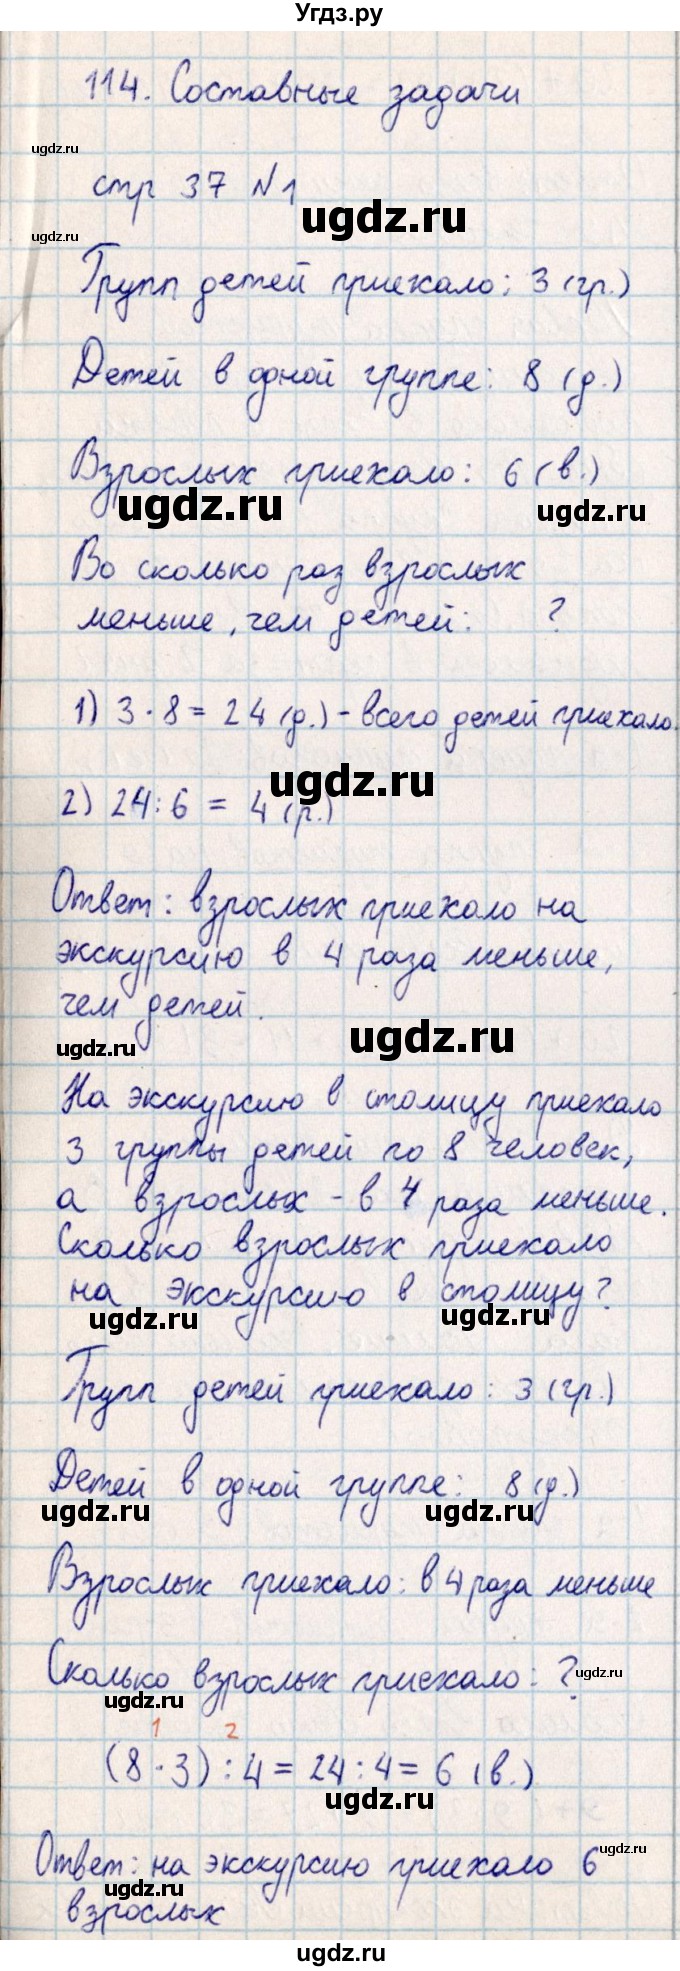 Угдз.ру
114. Составные задачи
ugdz.ru
стр 37 №1
ugdz.ru
ugdz.ru
Групп детей приехало: 3 (гр.)
Детей в одной группе: 8 (д.)
Взрослых приехало: 6 (в.)
ugdz.ru
ugdz.ru
Во сколько раз взрослых
меньше, чем детей: ?
1) 3 · 8 = 24 (д.) - всего детей приехало.
ugdz.ru
2) 24 : 6 = 4 (р.)
Ответ: взрослых приехало на
экскурсию в 4 раза меньше,
чем детей.
ugdz.ru
ugdz.ru
На экскурсию в столицу приехало
3 группы детей по 8 человек,
а взрослых - в 4 раза меньше.
Сколько взрослых приехало
на экскурсию в столицу?
ugdz.ru
ugdz.ru
Групп детей приехало: 3 (гр.)
Детей в одной группе: 8 (д.)
ugdz.ru
ugdz.ru
Взрослых приехало: в 4 раза меньше
Сколько взрослых приехало: ?
ugdz.ru
ugdz.ru
1 2
(8 · 3) : 4 = 24 : 4 = 6 (в.)
ugdz.ru
Ответ: на экскурсию приехало 6
ugdz.ru
ugdz.ru
взрослых
ugdz.ru